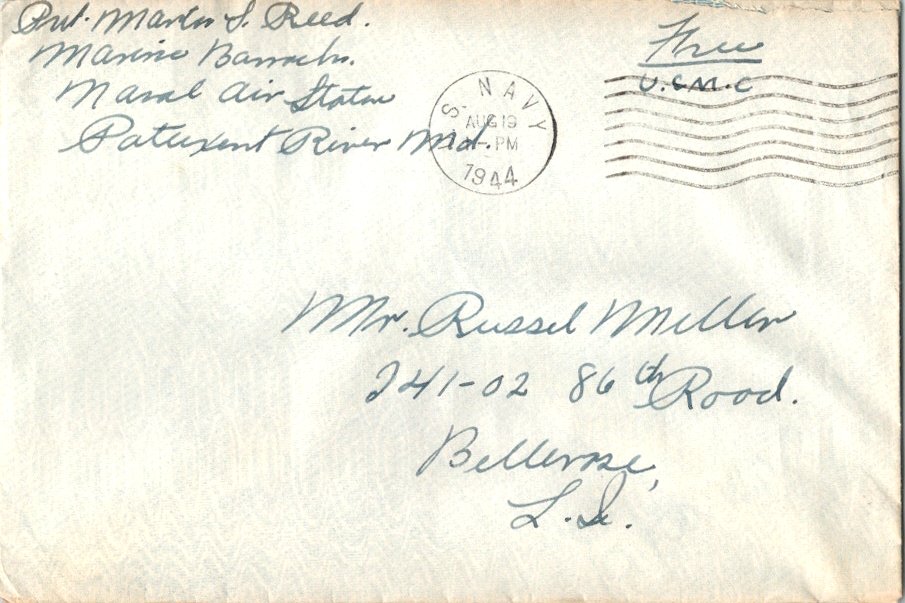 Pvt. Martin S. Reed.
Marine Barracks.
Naval Air Station
Patuxent River Md.
Free
U.S.M.C
S. NAVY
AUG 19
PM
1944
Mr. Russel Miller
241-02 86th Road.
Bellerose,
L.I.